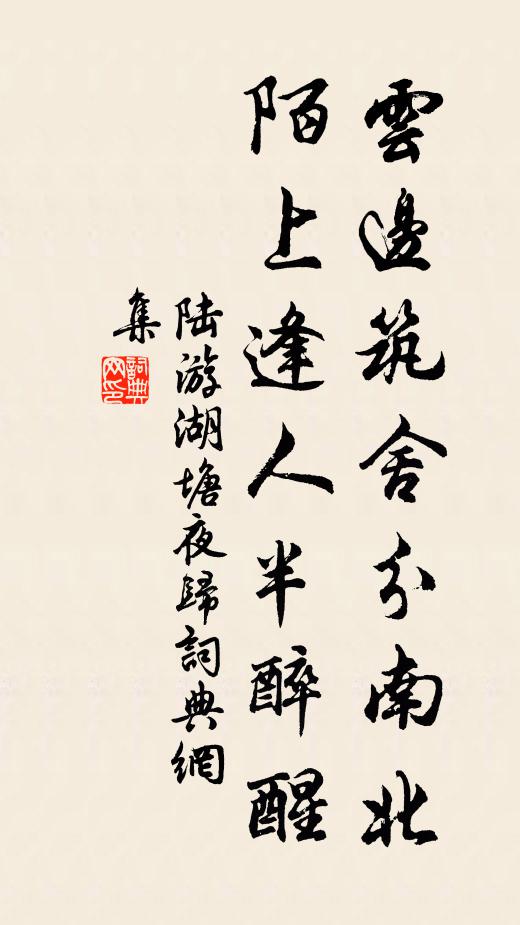 雲邊筑舍分南北
陌上逢人半醉醒
陆游湖塘夜歸詞典網
集
詞典
网印